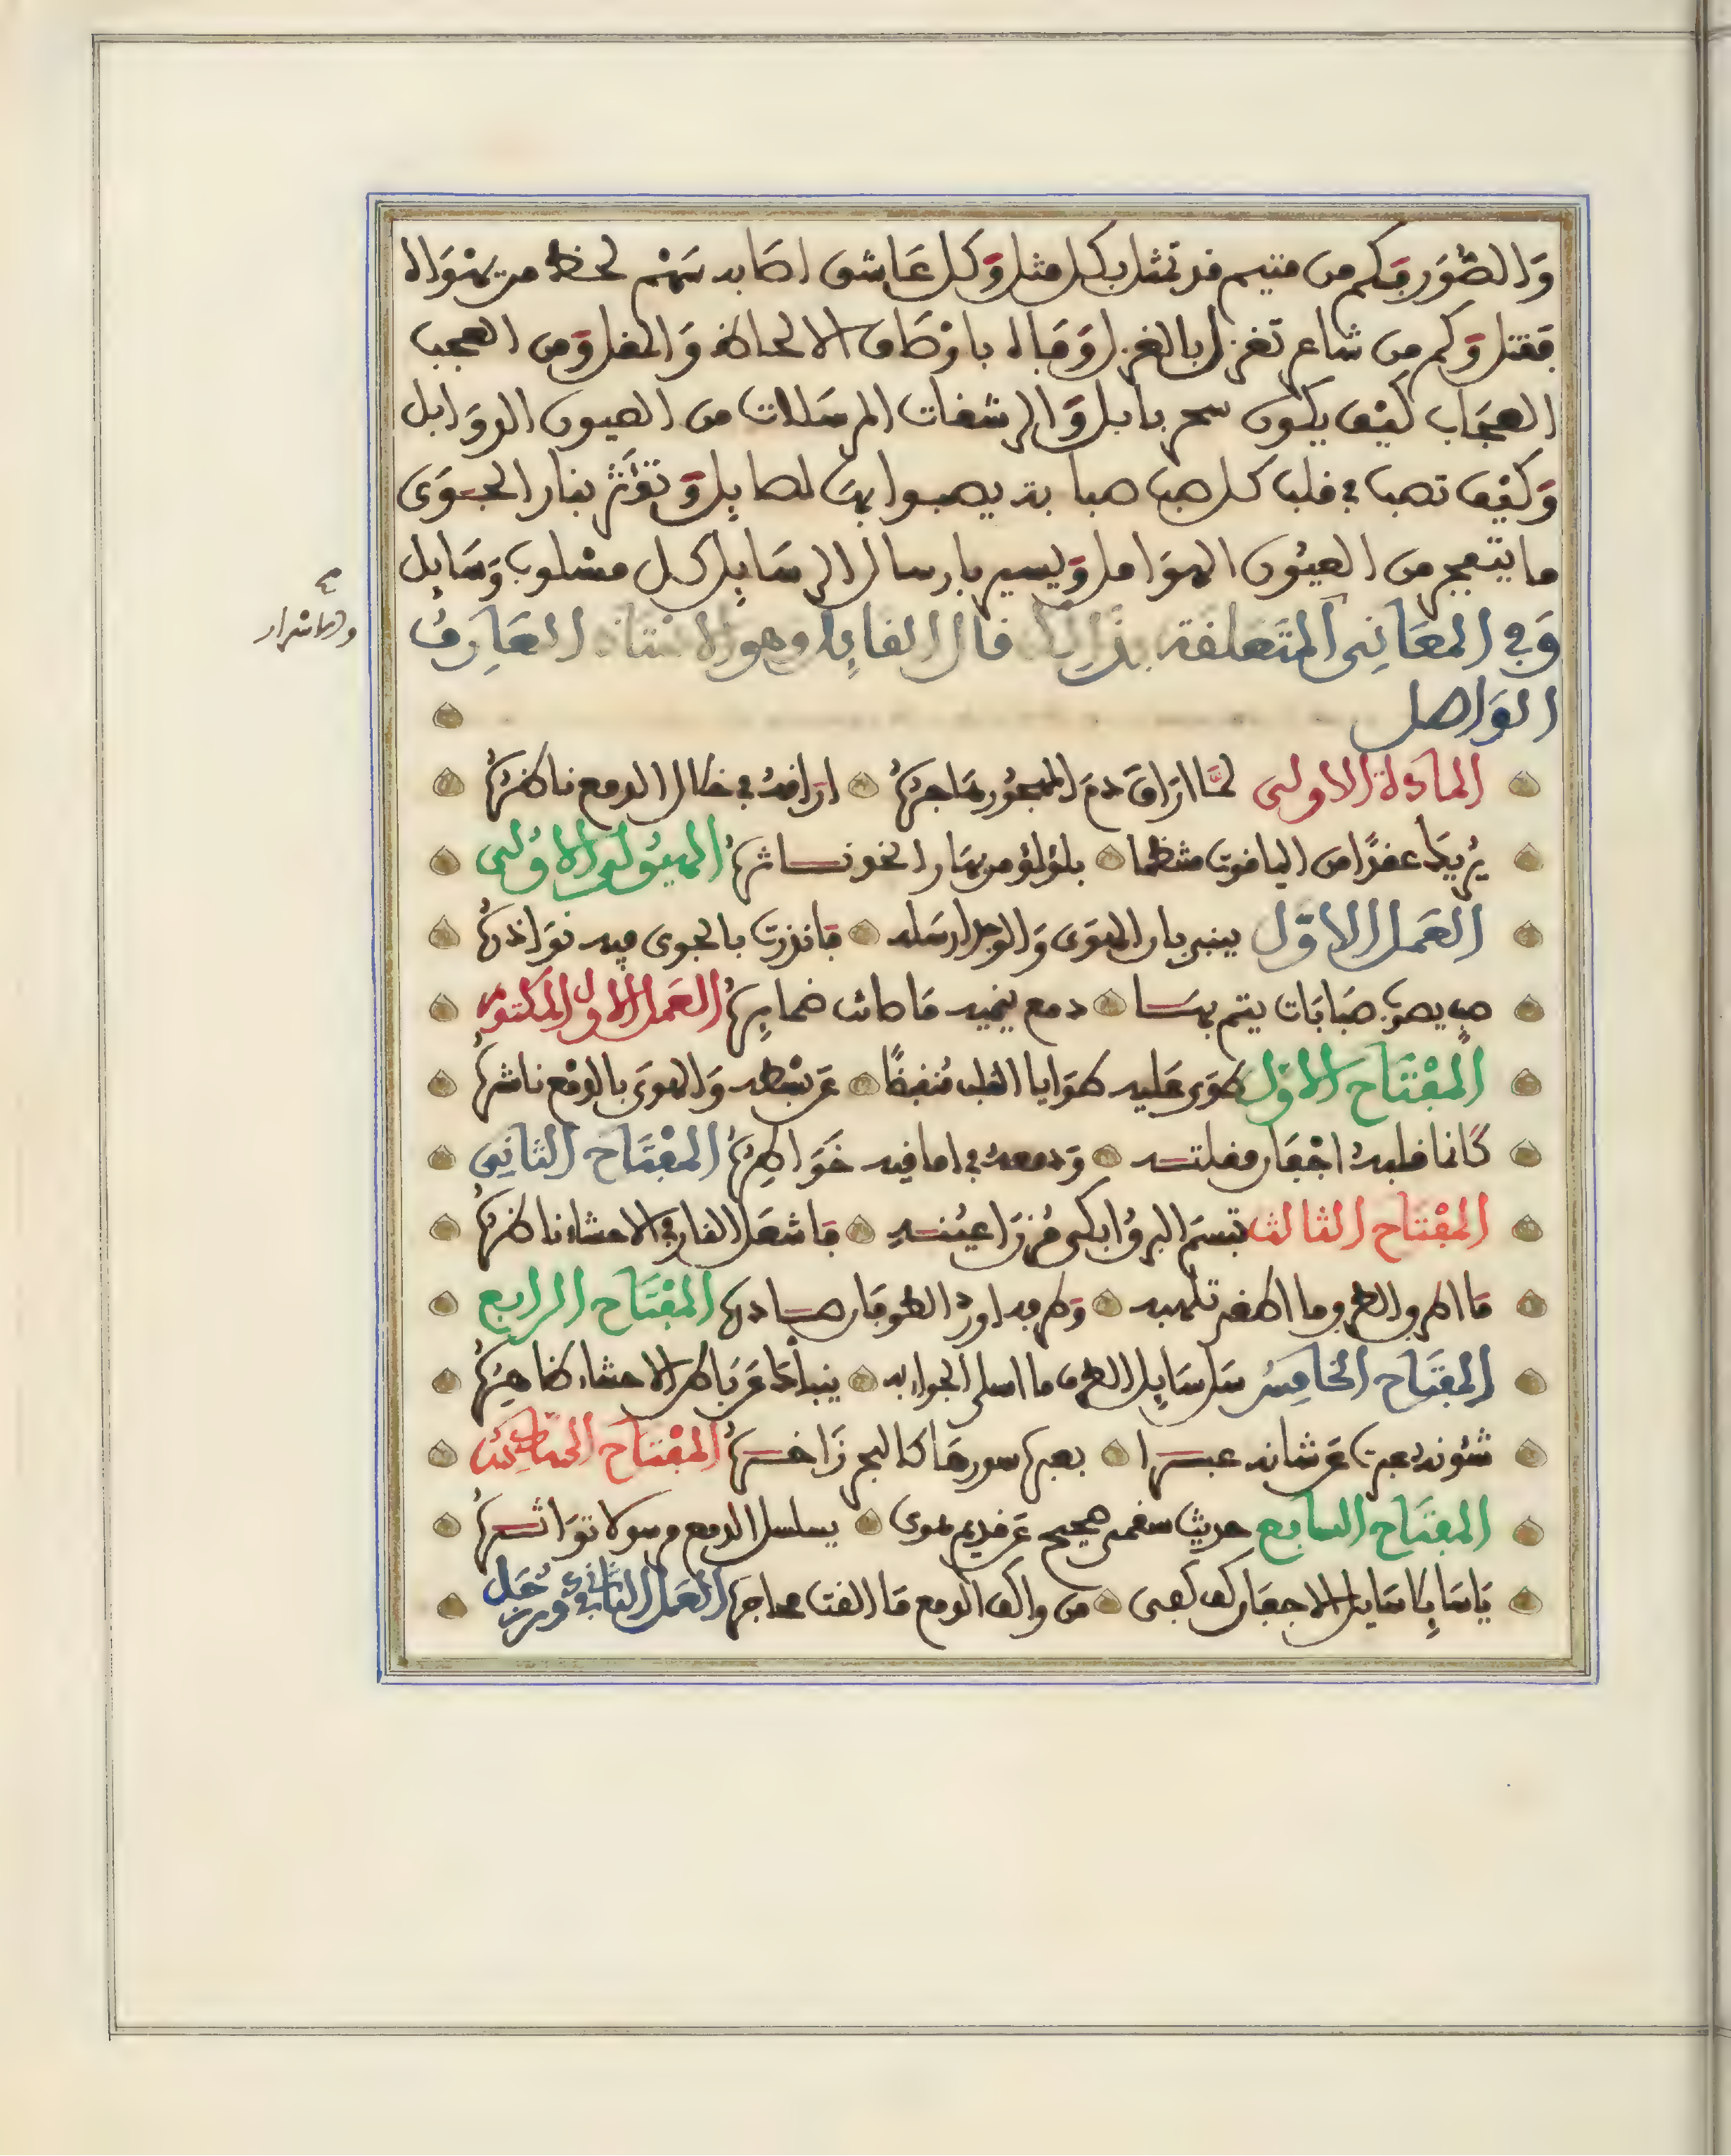 وَالصُّوَر فَكم من متيم قد تمثل بكل مثل وَكل عَاشق اصَابه سَهْم لحظ من يهْوَاه
فقتل وَكم من شاعر تغزل بالغزل وَقال باوْصَاف الالحاظ وَالمقل وَمن العجب
العجَاب كيْف يكون سحر بابل وَالرشفات المرسَلات من العيون الذوَابل
وَكيْف تصب في قلب كل صب صبابة يصبوا بهَا لصابل وَتؤثر بنار الجوَى
ما يتفجر من العيُون الهوَامل وَيسير بارسال الرسَايِل كل مسْلوب وَسَايل
والاسْرار
وَفي المعَاني المتعَلقة بذَالك قال القايِل وهو الاستاذ العَارف
الوَاصل
المادة الاولى لمَّا ارَاق دمَ المهجُور هَاجرهَا ارَاقهُ في خلال الدمع ناظرُهَا
يُريكَ عقدًا من الياقوت منتظما بلؤلؤ من بهَار الخد ناثرهَا الهيُولى الاوْلى
العَمل الاوّل ينبي بان الهوَى وَالوجد ارسَله فانذرت بالجوى فيه نوَاذرهَا
صب يصوب صَبَابَات يتم بهَا دمع ينميه مَا صانت ضمايرهَا العَمل الاول المكتوم
المفْتَاح الاوّل طوَى عليه طوَايا القلب مُنقبضًا عَن بسْطه وَالهوَى بالدمْع ناشرهَا
كَانما قلبهُ اجْفان مقلتـه وَدمعهُ في اماقيه خوَاطرُهَا المفْتَاح الثاني
المفْتَاح الثالث تبسم البرقُ ابكى مُزن اعيُنـهِ فاشعَل النار في الاحشاء ناظرهَا
مَا اطرق الطرف وما اطفى تلهبه وَكم به اورد الطوفان صـادرهَا المفْتَاح الرابع
المفتَاح الخامس سَل سَايِل الطرف ما اسلى الجوا به ينبأكَ عَن بَاطن الاحشاء ظاهرُهَا
شئونه عبرت عَن شانه عبـرا بعبرهَا كالبحر زَاخـرهَا المفْتَاح السَّادس
المفتَاح السابع حديث سقمى صحيح عَن قديم هوى يسلسل الدمع مرسولا توَاتـرهَا
يَا سَايِلا سَايل الاجفان كف كفى من واكف الدمع مَا القت محاجرهَا العَمل الثاني